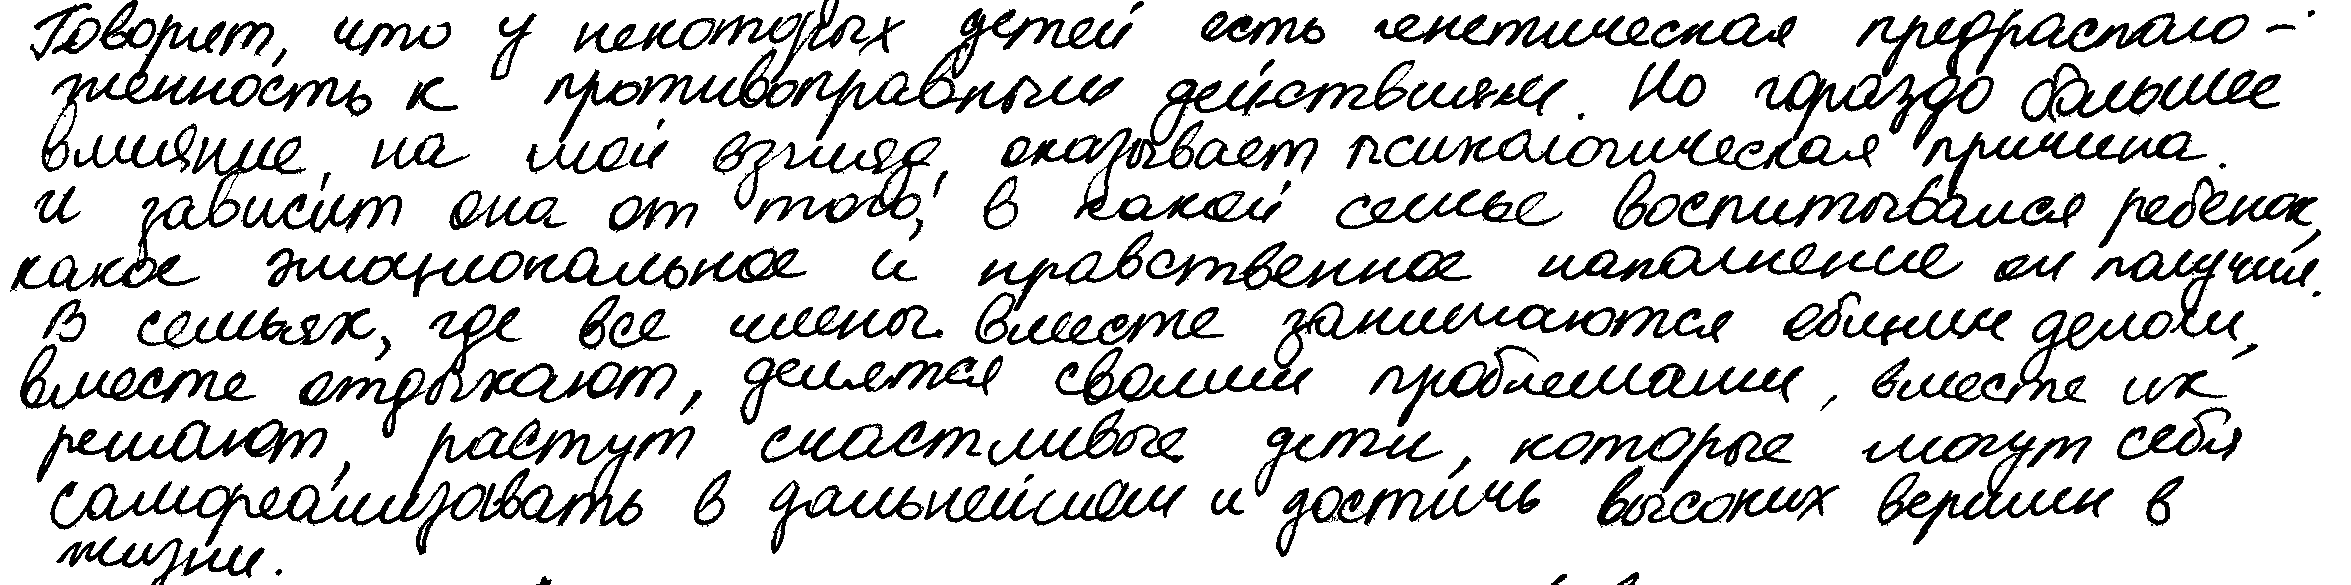 Говорят, что у некоторых детей есть генетическая предрасполо-
женность к противоправным действиям. Но гораздо большее
влияние, на мой взгляд, оказывает психологическая причина.
И зависит она от того, в какой семье воспитывался ребенок,
какое эмоциональное и нравственное наполнение он получил.
В семьях, где все члены вместе занимаются общим делом,
вместе отдыхают, делятся своими проблемами, вместе их
решают, растут счастливые дети, которые могут себя
самореализовать в дальнейшем и достичь высоких вершин в
жизни.